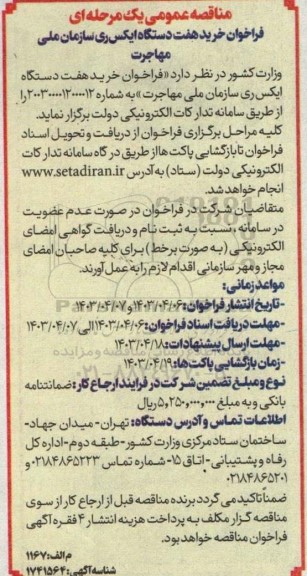 مناقصه عمومی یک مرحله ای
فراخوان خرید هفت دستگاه ایکس ری سازمان ملی
مهاجرت
وزارت کشور در نظر دارد «فراخوان خرید هفت دستگاه
ایکس ری سازمان ملی مهاجرت» به شماره ۲۰۰۳۰۰۰۰۱۲۰۰۰۰۱۲
از طریق سامانه تدارکات الکترونیکی دولت برگزار نماید.
کلیه مراحل برگزاری فراخوان از دریافت و تحویل اسناد
فراخوان تا بازگشایی پاکت ها از طریق در گاه سامانه تدارکات
الکترونیکی دولت (ستاد) به آدرس www.setadiran.ir
انجام خواهد شد.
متقاضیان شرکت در فراخوان در صورت عدم عضویت
در سامانه، نسبت به ثبت نام و دریافت گواهی امضای
الکترونیکی (به صورت برخط) برای کلیه صاحبان امضای
مجاز و مهر سازمانی اقدام لازم را به عمل آورند.
مواعد زمانی:
-تاریخ انتشار فراخوان: ۱۴۰۳/۰۴/۰۶ و ۱۴۰۳/۰۴/۰۷
-مهلت دریافت اسناد فراخوان: ۱۴۰۳/۰۴/۰۶ الی ۱۴۰۳/۰۴/۰۷
-مهلت ارسال پیشنهادات: ۱۴۰۳/۰۴/۱۸
-زمان بازگشایی پاکت ها: ۱۴۰۳/۰۴/۱۹
نوع و مبلغ تضمین شرکت در فرایند ارجاع کار: ضمانتنامه
بانکی و به مبلغ ۵,۲۵۰,۰۰۰,۰۰۰ ریال
اطلاعات تماس و آدرس دستگاه: تهران- میدان جهاد-
ساختمان ستاد مرکزی وزارت کشور- طبقه دوم- اداره کل
رفاه و پشتیبانی- اتاق ۱۵- شماره تماس ۰۲۱۸۴۸۶۵۲۲۳ و
۰۲۱۸۴۸۶۵۲۰۱
ضمنا تاکید می گردد برنده مناقصه قبل از ارجاع کار از سوی
مناقصه گزار مکلف به پرداخت هزینه انتشار ۴ فقره آگهی
فراخوان مناقصه خواهد بود.
م الف: ۱۱۶۷
شناسه آگهی: ۱۷۴۱۵۶۴